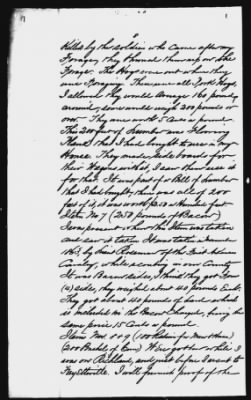 1
killed by the soldiers who came after my
forage, they them up on the
forage. The Hogs were out when they
were Foraging. There were all Fork Hogs,
I allowed they would average 160 pounds
around, some would weigh 200 pounds or
over. They are worth 5 Cents a pound.
The 200 feet of Lumber was Flooring
Plank that I had bought to use in my
House. They made boards for
their Wagons with it, I saw them use it
for that. It was part of a Bill of lumber
that I had bought, there was all of 200
feet of it, it was worth a Hundred feet
Item No 7 (250 pounds of Bacon)
I was present when this Item was taken
and saw it taken. It was taken in
186 by Gen'l men of the First Ala
Cavalry, while along in our County
It was Bacon sides, I think they got Four
(4) sides, they weighed about 40 pounds Each.
They got about 40 pounds of lard which
is included in the Bacon Charge, being the
same price 15 Cents a pound.
Items Nos. 8 & 9 (100 of Mess )
(200 Bushels of Corn) Were got while I
was in and just before I went to
Fayetteville. I will furnish proof of the